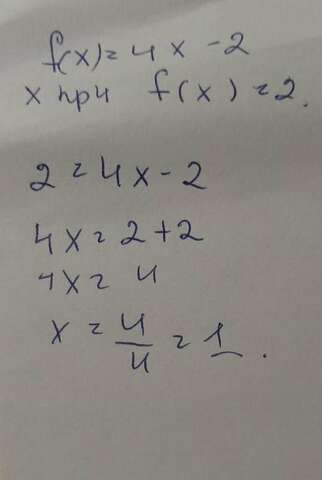 f(x) = 4x - 2
x при f(x) = 2.
2 = 4x - 2
4x = 2 + 2
4x = 4
x = 4/4 = 1.